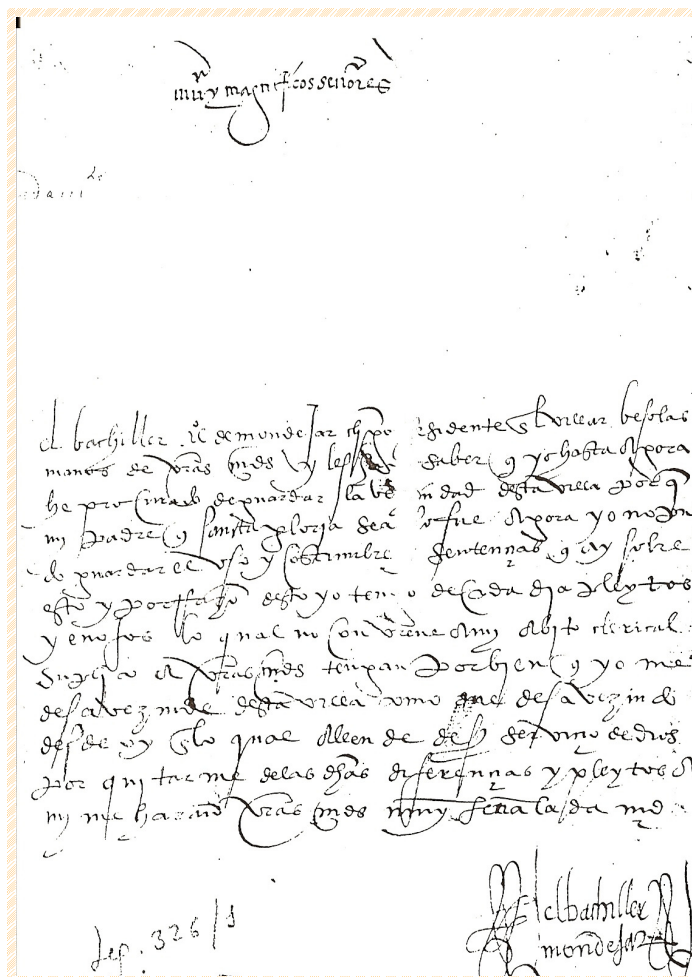 muy magnificos señores
el bachiller Rº de mondejar clº residente en bellvear besolas
manos de vras mds y les hago saber q yo hasta agora
he procurado de guardar la vezindad desta villa porq
mi padre q santa gloria aya lo fue agora yo no puedo
guardar el uso y costumbre sentencias q ay sobre
esto y por razon desto yo tengo de cada dia pleytos
y enojos lo qual no conviene a mi abito clerical
suplico a vras mds tengan por bien q yo me
desavezinde desta villa como me desavezindo
desde oy lo qual allende de ser servicio de dios
por quitarme de las dhas diferencias y pleytos a
mi me haran vras mds muy señalada md
el bachiller
mondejar
Lep. 326/1